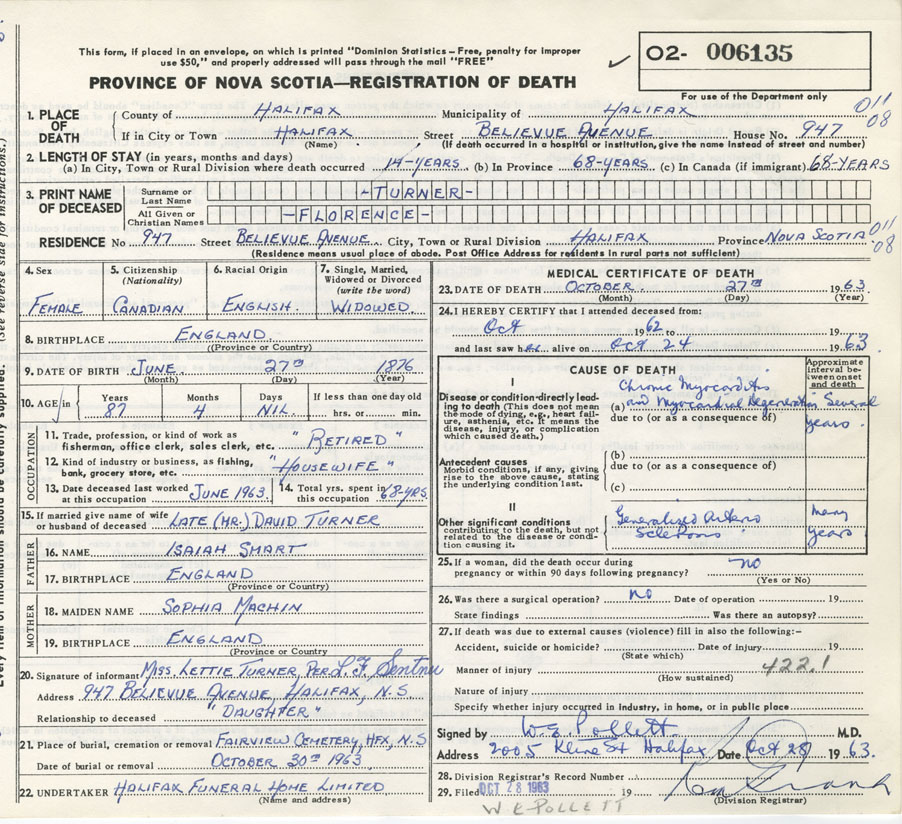 This form, if placed in an envelope, on which is printed "Dominion Statistics – Free, penalty for improper
use $50," and properly addressed will pass through the mail "FREE"
PROVINCE OF NOVA SCOTIA—REGISTRATION OF DEATH
O2- 006135
For use of the Department only
011
08
1. PLACE OF DEATH
County of HALIFAX Municipality of HALIFAX
If in City or Town HALIFAX Street BELLEVUE AVENUE House No. 947
(Name) (If death occurred in a hospital or institution, give the name instead of street and number)
2. LENGTH OF STAY (in years, months and days)
(a) In City, Town or Rural Division where death occurred 14-YEARS (b) In Province 68-YEARS (c) In Canada (if immigrant) 68-YEARS
3. PRINT NAME OF DECEASED
Surname or Last Name -TURNER-
All Given or Christian Names -FLORENCE-
RESIDENCE No 947 Street BELLEVUE AVENUE City, Town or Rural Division HALIFAX Province NOVA SCOTIA 011
08
(Residence means usual place of abode. Post Office Address for residents in rural parts not sufficient)
4. Sex
FEMALE
5. Citizenship (Nationality)
CANADIAN
6. Racial Origin
ENGLISH.
7. Single, Married, Widowed or Divorced (write the word)
WIDOWED.
8. BIRTHPLACE ENGLAND
(Province or Country)
9. DATE OF BIRTH JUNE 27TH 1876
(Month) (Day) (Year)
10. AGE in Years 87 Months 4 Days NIL. If less than one day old
hrs. or min.
OCCUPATION
11. Trade, profession, or kind of work as
fisherman, office clerk, sales clerk, etc. "RETIRED"
12. Kind of industry or business, as fishing,
bank, grocery store, etc. "HOUSEWIFE"
13. Date deceased last worked at this occupation JUNE 1963. 14. Total yrs. spent in this occupation 68-YRS.
15. If married give name of wife
or husband of deceased LATE (MR.) DAVID TURNER
FATHER
16. NAME ISAIAH SMART
17. BIRTHPLACE ENGLAND
(Province or Country)
MOTHER
18. MAIDEN NAME SOPHIA MACHIN
19. BIRTHPLACE ENGLAND
(Province or Country)
20. Signature of informant MISS. LETTIE TURNER, PER L. F. Sentner
Address 947 BELLEVUE AVENUE, HALIFAX, N.S
Relationship to deceased "DAUGHTER"
21. Place of burial, cremation or removal FAIRVIEW CEMETERY, HFX, N.S
Date of burial or removal OCTOBER 30TH 1963.
22. UNDERTAKER HALIFAX FUNERAL HOME LIMITED
(Name and address)
MEDICAL CERTIFICATE OF DEATH
23. DATE OF DEATH OCTOBER 27TH 1963
(Month) (Day) (Year)
24. I HEREBY CERTIFY that I attended deceased from:
Oct 1962 to 19
and last saw her alive on Oct 24 1963.
CAUSE OF DEATH
Approximate interval between onset and death
I
Disease or condition-directly leading to death (This does not mean the mode of dying, e.g., heart failure, asthenia, etc. It means the disease, injury, or complication which caused death.)
Chronic Myocarditis
(a) and Myocardial Degeneration Several years.
due to (or as a consequence of)
Antecedent causes
Morbid conditions, if any, giving rise to the above cause, stating the underlying condition last.
(b)
due to (or as a consequence of)
(c)
II
Other significant conditions
contributing to the death, but not related to the disease or condition causing it.
Generalised Arterio Sclerosis many years
25. If a woman, did the death occur during
pregnancy or within 90 days following pregnancy? no
(Yes or No)
26. Was there a surgical operation? no Date of operation 19
State findings Was there an autopsy?
27. If death was due to external causes (violence) fill in also the following:–
Accident, suicide or homicide? Date of injury 19
(State which)
Manner of injury 422.1
(How sustained)
Nature of injury
Specify whether injury occurred in Industry, in home, or in public place
Signed by W. E. Pollett M.D.
Address 2005 Kline St Halifax Date Oct 28 1963.
28. Division Registrar's Record Number
29. Filed OCT 28 1963 19
(Division Registrar)
W E POLLETT
(See reverse side for instructions.)